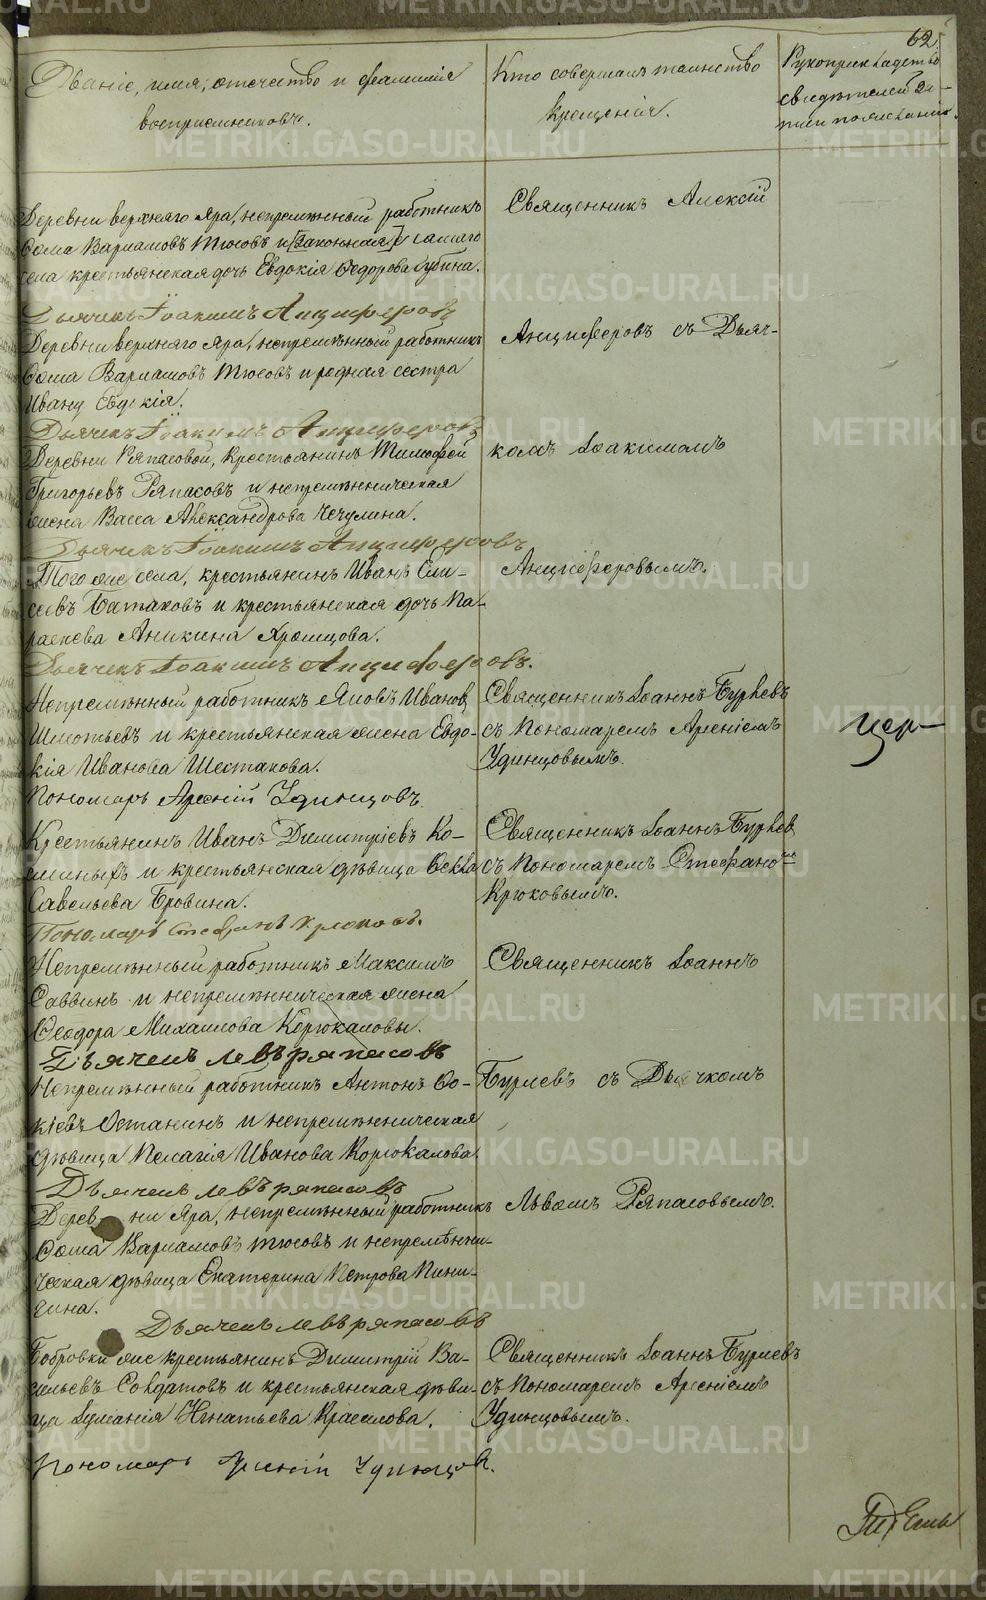 62.
Званіе, имя, отечество и фамилія
воспріемниковъ.
Кто совершалъ таинство
крещенія.
Рукоприкладство
свидѣтелей за-
писи по желанію.
Деревни верхняго Яра, непремѣнный работникъ
Ѳома Варламовъ Тюсовъ и [законная] самаго
села крестьянская дочь Евдокія Ѳедорова Губина.
Дьячекъ Іоакимъ Анциферовъ
Деревни верхняго Яра, непремѣнный работникъ
Ѳома Варламовъ Тюсовъ и родная сестра
Ивану Евдокія.
Дьячекъ Іоакимъ Анциферовъ
Деревни Ряпасовой, крестьянинъ Тимофей
Григорьевъ Ряпасовъ и непремѣнническая
жена Васса Александрова Чечулина.
Дьячекъ Іоакимъ Анциферовъ
Того же села, крестьянинъ Иванъ Ели-
сеевъ Батаковъ и крестьянская дочь Па-
раскева Аникина Хромцова.
Дьячекъ Іоакимъ Анциферовъ.
Священникъ Алексій
Анциферовъ съ Дьяч-
комъ Іоакимомъ
Анциферовымъ.
Непремѣнный работникъ Яковъ Ивановъ
и крестьянская жена Евдо-
кія Иванова Шестакова.
Пономарь Арсеній Удинцовъ.
Священникъ Іоаннъ Бурлевъ
съ Пономаремъ Арсеніемъ
Удинцовымъ.
Крестьянинъ Иванъ Димитріевъ Ко-
и крестьянская дѣвица Ѳекла
Савельева Бровина.
Пономарь Стефанъ Крюковъ.
Священникъ Іоаннъ Бурлев
съ Пономаремъ Стефаномъ
Крюковымъ.
Непремѣнный работникъ Максимъ
Саввинъ и непремѣнническая жена
Ѳеодора Михаилова Корюкаловы.
Дьячекъ Левъ Ряпасовъ
Непремѣнный работникъ Антонъ Ѳо-
кіевъ Останинъ и непремѣнническая
дѣвица Пелагія Иванова Корюкалова.
Дьячекъ Левъ Ряпасовъ
Деревни Яра, непремѣнный работникъ
Ѳома Варламовъ Тюсовъ и непремѣнни-
ческая дѣвица Екатерина Петрова Пини-
гина.
Дьячекъ Левъ Ряпасовъ
Священникъ Іоаннъ
Бурлевъ съ Дьячкомъ
Львомъ Ряпасовымъ.
Бобровки же крестьянинъ Димитрій Ва-
сильевъ Солдатовъ и крестьянская дѣви-
ца Іуліанія Игнатьева Красилова.
Пономарь Арсеній Удинцовъ.
Священникъ Іоаннъ Бурлевъ
съ Пономаремъ Арсеніемъ
Удинцовымъ.
цер-
METRIKI.GASO-URAL.RU